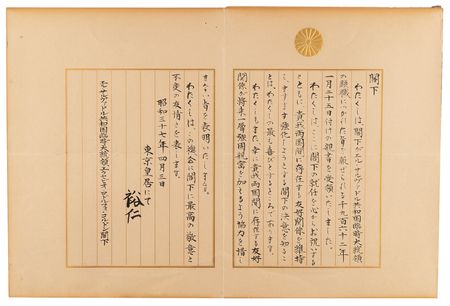 閣下
わたくしは、閣下がエル・サルヴァドル共和国臨時大統領
の顕職につかれた旨を報ぜられる千九百六十二年
一月二十五日付けの親書を受領いたしました。
わたくしは、ここに閣下の就任を心からお祝いする
とともに、貴我両国間に存在する友好関係を維持
し、ますます強化しようとする閣下の決意を知るこ
とは、わたくしの最も喜びとするところであります。
わたくしもまた幸に貴我両国間に存在する友好
関係が将来一層強固親密を加えるよう協力を惜し
まない旨を表明いたします。
わたくしは、この機会に閣下に最高の敬意と
不変の友情とを表します。
昭和三十七年四月三日
東京皇居にて
裕仁
エル・サルヴァドル共和国臨時大統領 コルドン閣下